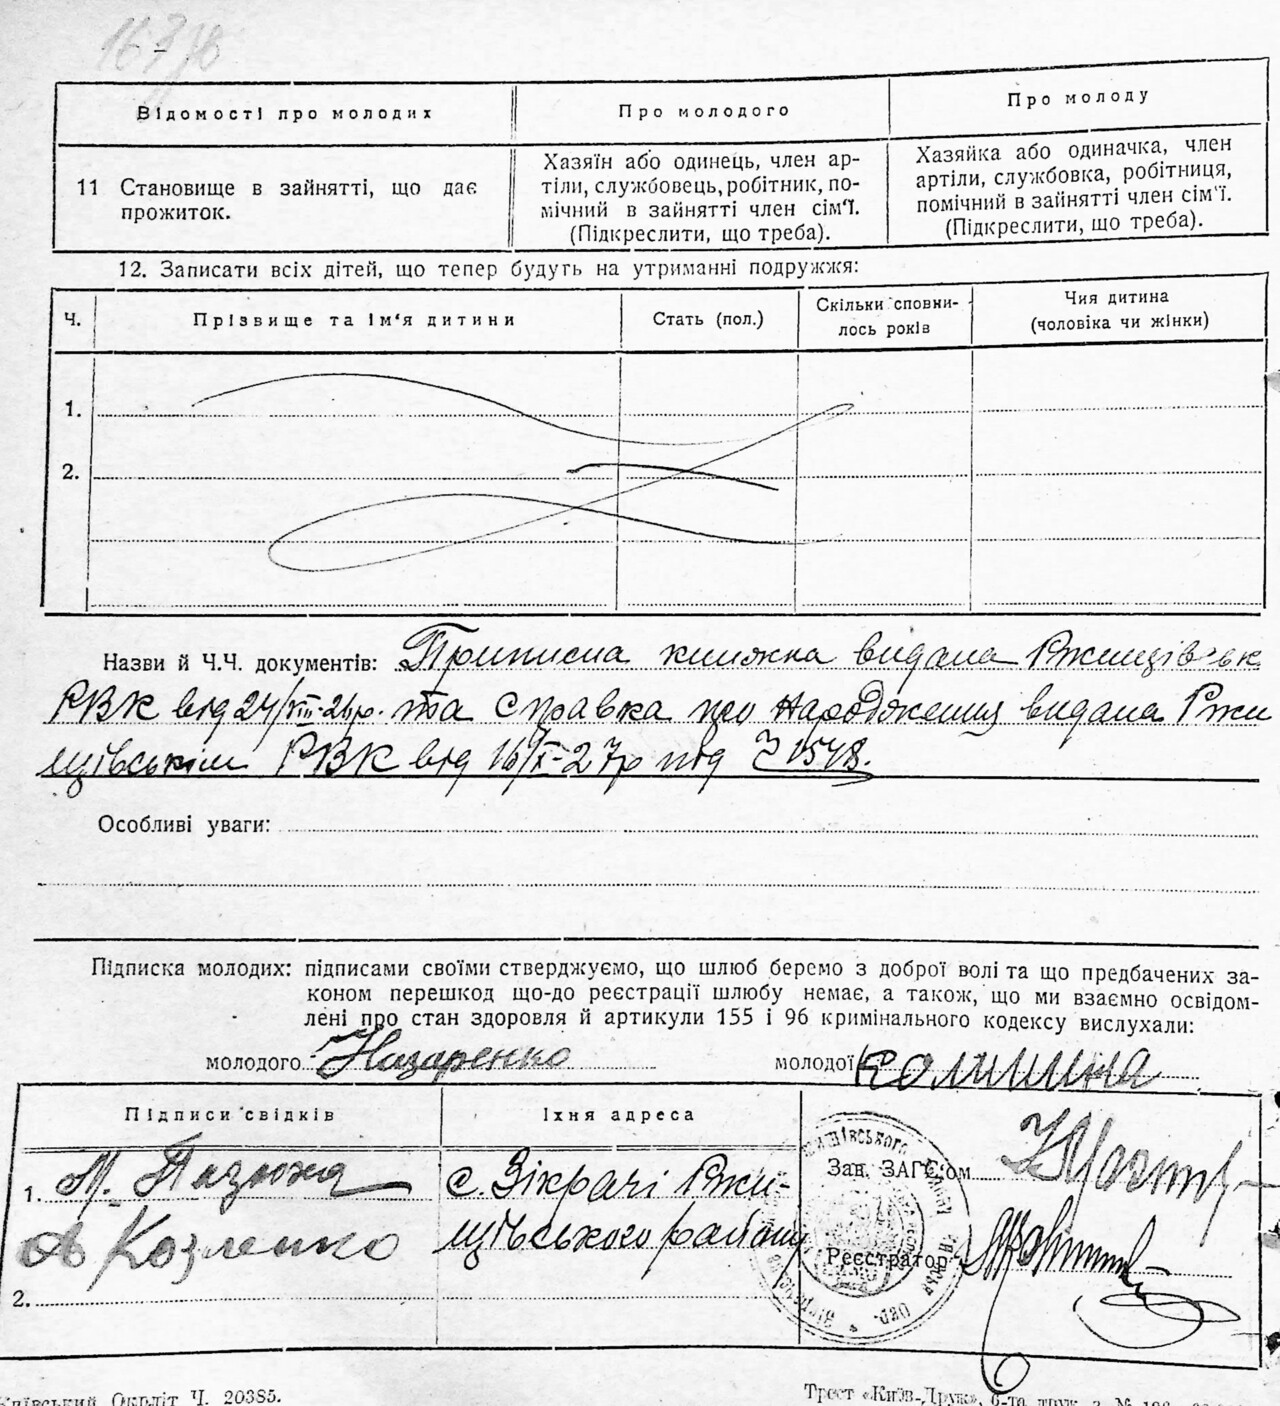 Відомості про молодих
Про молодого
Про молоду
11 Становище в зайнятті, що дає
прожиток.
Хазяїн або одинець, член ар-
тіли, службовець, робітник, по-
мічний в зайнятті член сім'ї.
(Підкреслити, що треба).
Хазяйка або одиначка, член
артіли, службовка, робітниця,
помічний в зайнятті член сім'ї.
(Підкреслити, що треба).
12. Записати всіх дітей, що тепер будуть на утриманні подружжя:
Ч.
Прізвище та ім'я дитини
Стать (пол.)
Скільки сповни-
лось років
Чия дитина
(чоловіка чи жінки)
1.
2.
Назви й Ч.Ч. документів: Приписна книжка видана Ржищівськ
РВК від 24/VIII-26р. та справка про народження видана Ржи
щівським РВК від 16/X-27р під Ч 1548.
Особливі уваги:
Підписка молодих: підписами своїми стверджуємо, що шлюб беремо з доброї волі та що предбачених за-
коном перешкод що-до реєстрації шлюбу немає, а також, що ми взаємно освідом-
лені про стан здоровля й артикули 155 і 96 кримінального кодексу вислухали:
молодого Назаренко
молодої Калинина
Підписи свідків
Їхня адреса
1. М. Пазюка
А Козленко
2.
с. Зікрачі Ржи-
щівського району
Зав. ЗАГС'ом
Реєстратор
Київський Окрліт Ч. 20385.
Трест «Київ-Друк», 6-та друк. з. №